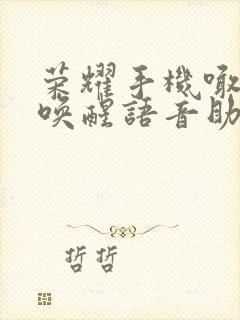 荣耀手機噉
唤醒語音助
哲哲